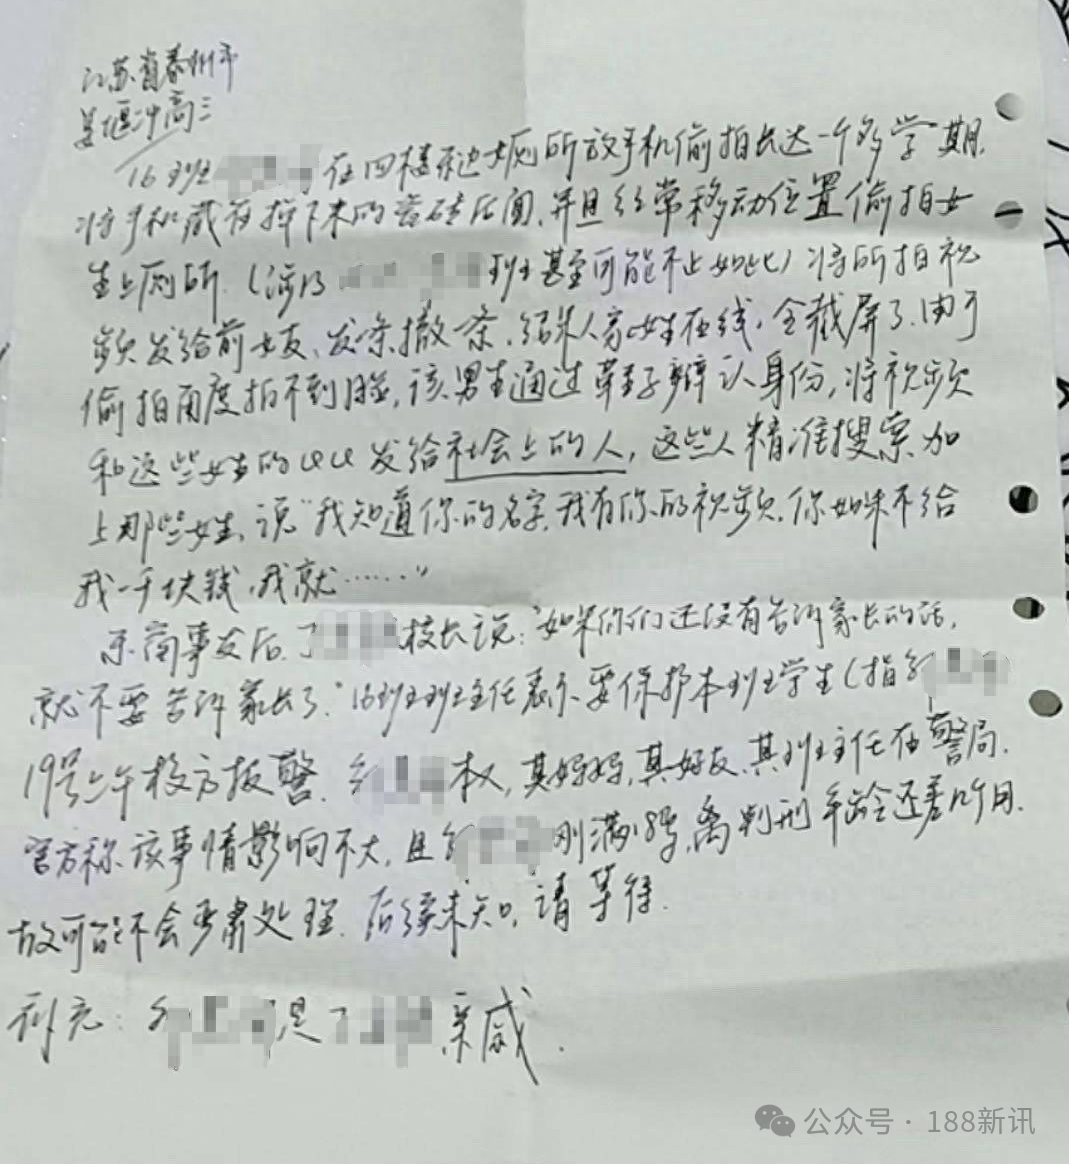 江苏省泰州市
姜堰中高三
16班 在四楼男边女厕所放手机偷拍长达一个多学期.
将手机藏在掉下来的瓷砖后面,并且经常移动位置偷拍女
生上厕所.(涉及 班甚至可能不止如此)将所拍视
频发给前女友、发一条撤一条,结果人家女生在线,全截屏了.由于
偷拍角度拍不到脸,该男生通过鞋子辨认身份,将视频
和这些女生的QQ发给社会上的人,这些人精准搜索加
上那些女生,说"我知道你的名字,我有你的视频,你如果不给
我一千块钱,我就……"
东窗事发后.丁 校长说:"如果你们还没有告诉家长的话,
就不要告诉家长了."16班班主任表示要保护本班学生(指
19号上午校方报警. 本人,其妈妈,其好友,其班主任在警局.
官方称该事情影响不大,且 刚满18岁,离判刑年龄还差几个月.
故可能不会严肃处理.后续未知,请等待.
补充: 是丁 亲戚.
公众号·188新讯